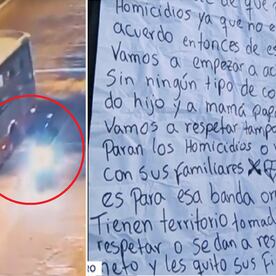 Homicidios ya que no
acuerdo entonces de es
Vamos a empezar a ac
Sin ningún tipo de co
do hijo y a mamá pap
Vamos a respetar tamp
Paran los Homicidios o v
con sus familiares X
es Para esa banda on
Tienen territorio tomad
respetar o se dan a res
meto y les quito sus F
RO